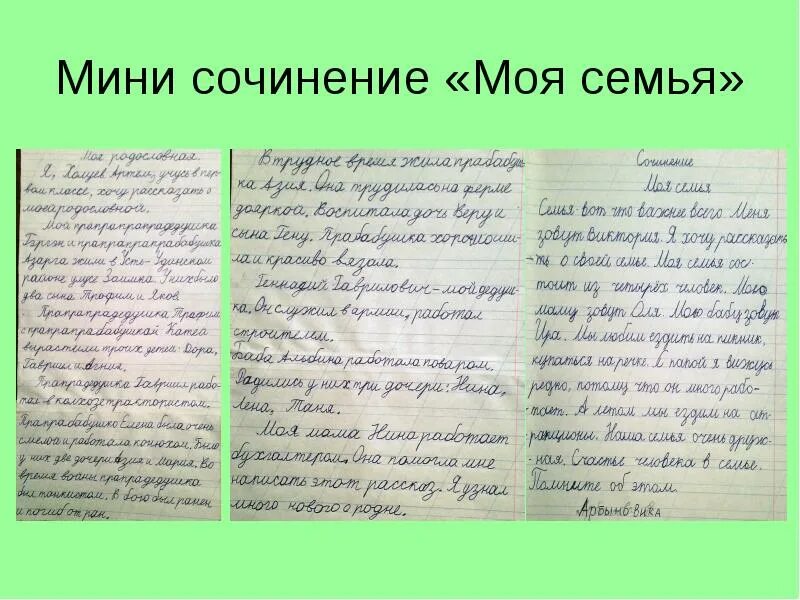 Мини сочинение «Моя семья»
Моя родословная.
Я, Холуев Артем, учусь в пер-
вом классе, хочу рассказать о
моей родословной.
Мой прапрапрапрадедушка
и прапрапрапрабабушка
Азарга жили в Усть-Удинском
районе улусе Заимка. У них было
два сына Трофим и Яков.
Прапрапрадедушка Трофим
с прапрапрабабушкой Катей
вырастили троих детей: Дора,
Гавриил и
Прапрадедушка Гавриил рабо-
тал в колхозе трактористом.
Прапрабабушка Елена была очень
смелой и работала конюхом. Было
у них две дочери Азия и Мария. Во
время войны прапрадедушка
был танкистом. В бою был ранен
и погиб от ран.
В трудное время жила прабабуш
ка Азия. Она трудилась на ферме
дояркой. Воспитала дочь Веру и
сына Гену. Прабабушка хорошо ши-
ла и красиво вязала.
Геннадий Гаврилович-мой дедуш-
ка. Он служил в армии, работал
строителем.
Баба Альбина работала поваром.
Радились у них три дочери: Нина,
Лена, Таня.
Моя мама Нина работает
бухгалтером. Она помогла мне
написать этот рассказ. Я узнал
много нового о родне.
Сочинение
Моя семья
Семья-вот что важнее всего. Меня
зовут Виктория. Я хочу рассказать
-ть о своей семье. Моя семья сос-
тоит из четырёх человек. Мою
маму зовут Оля. Мою бабу зовут
Ира. Мы любим ездить на пикник,
купаться на речке. С папой я вижусь
редко, потому что он много рабо-
-тает. А летом мы ездим на ат-
-ракционы. Наша семья очень друж-
-ная. Счастье человека в семье.
Помните об этом.
Арбын Вика